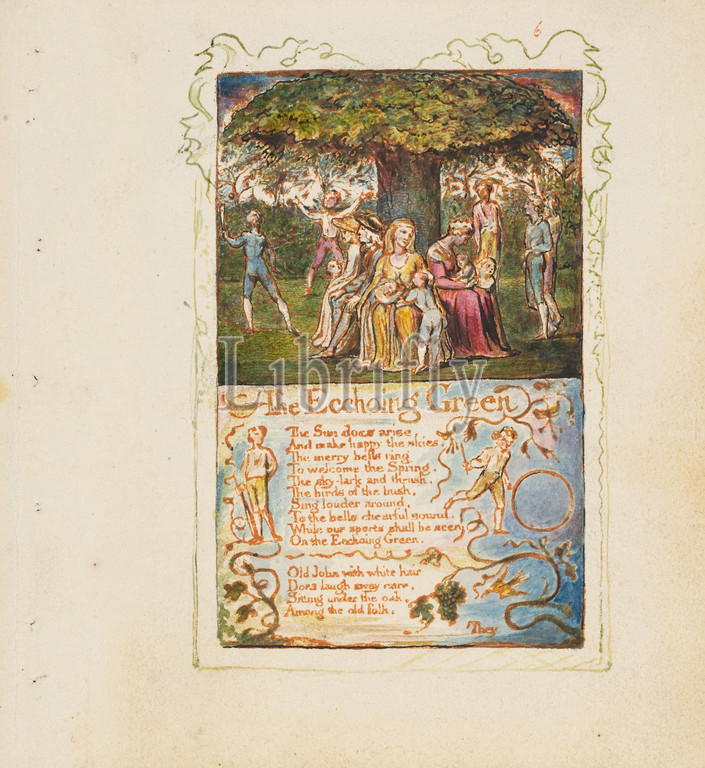 6
The Ecchoing Green
The Sun does arise,
And make happy the skies.
The merry bells ring
To welcome the Spring.
The sky-lark and thrush,
The birds of the bush,
Sing louder around,
To the bells cheerful sound.
While our sports shall be seen
On the Ecchoing Green.
Old John with white hair
Does laugh away care,
Sitting under the oak,
Among the old folk,
They
Librifly